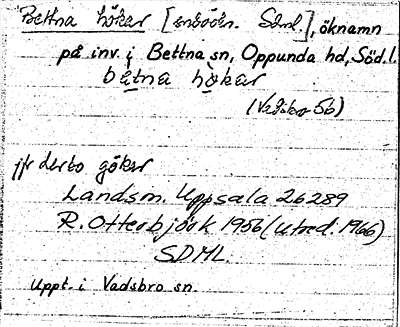 Bettna hökar [inbödn. Sdml.], öknamn
på inv. i Bettna sn, Oppunda hd, Söd.l.
bètna hökar
(Vadsbro 56)
jfr derbo gökar
Landsm. Uppsala 26289
R. Otterbjörk 1956 (utred. 1966)
SDML.
Uppt. i Vadsbro sn.